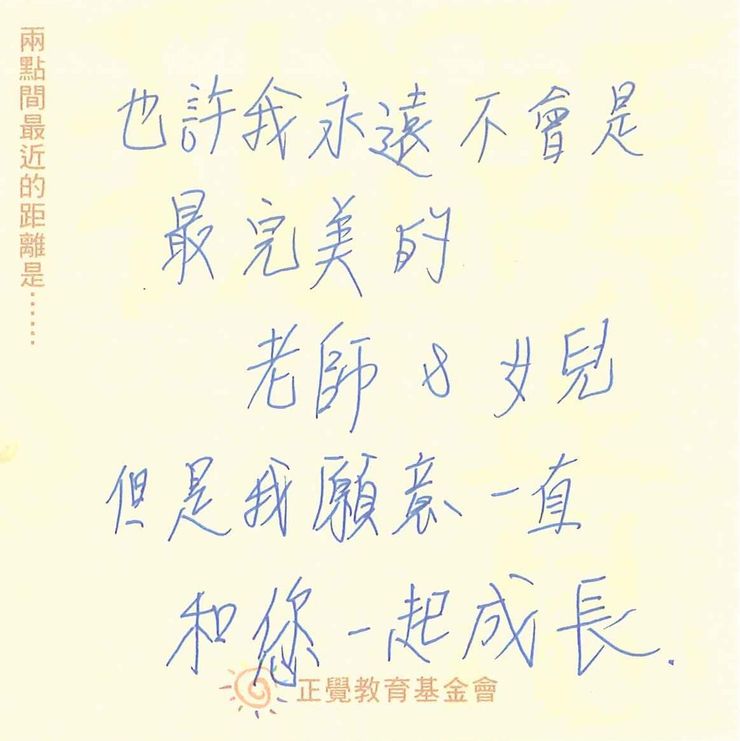 兩點間最近的距離是……
也許我永遠不會是
最完美的
老師 & 女兒
但是我願意一直
和您一起成長.
正覺教育基金會